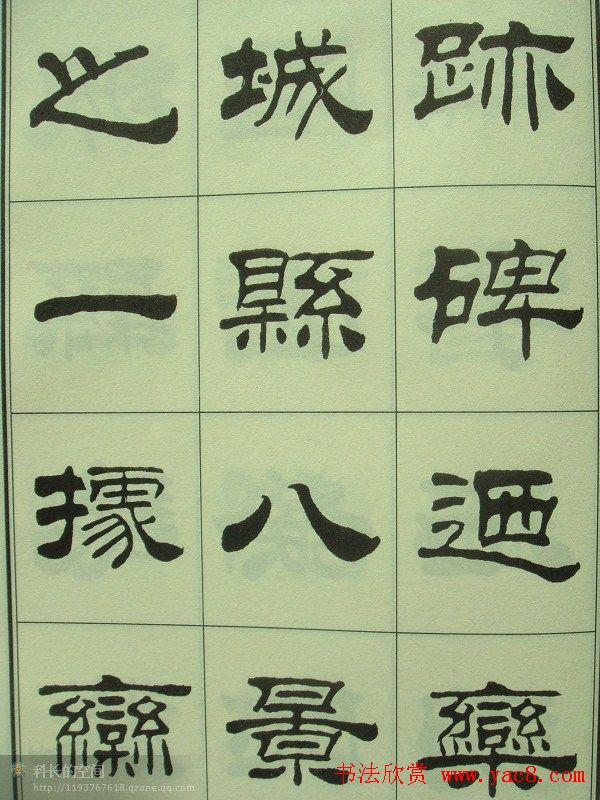 跡碑迺欒
城縣八景
之一據欒
科长的空间
http://1193767618.qzone.qq.com
书法欣赏 www.yac8.com